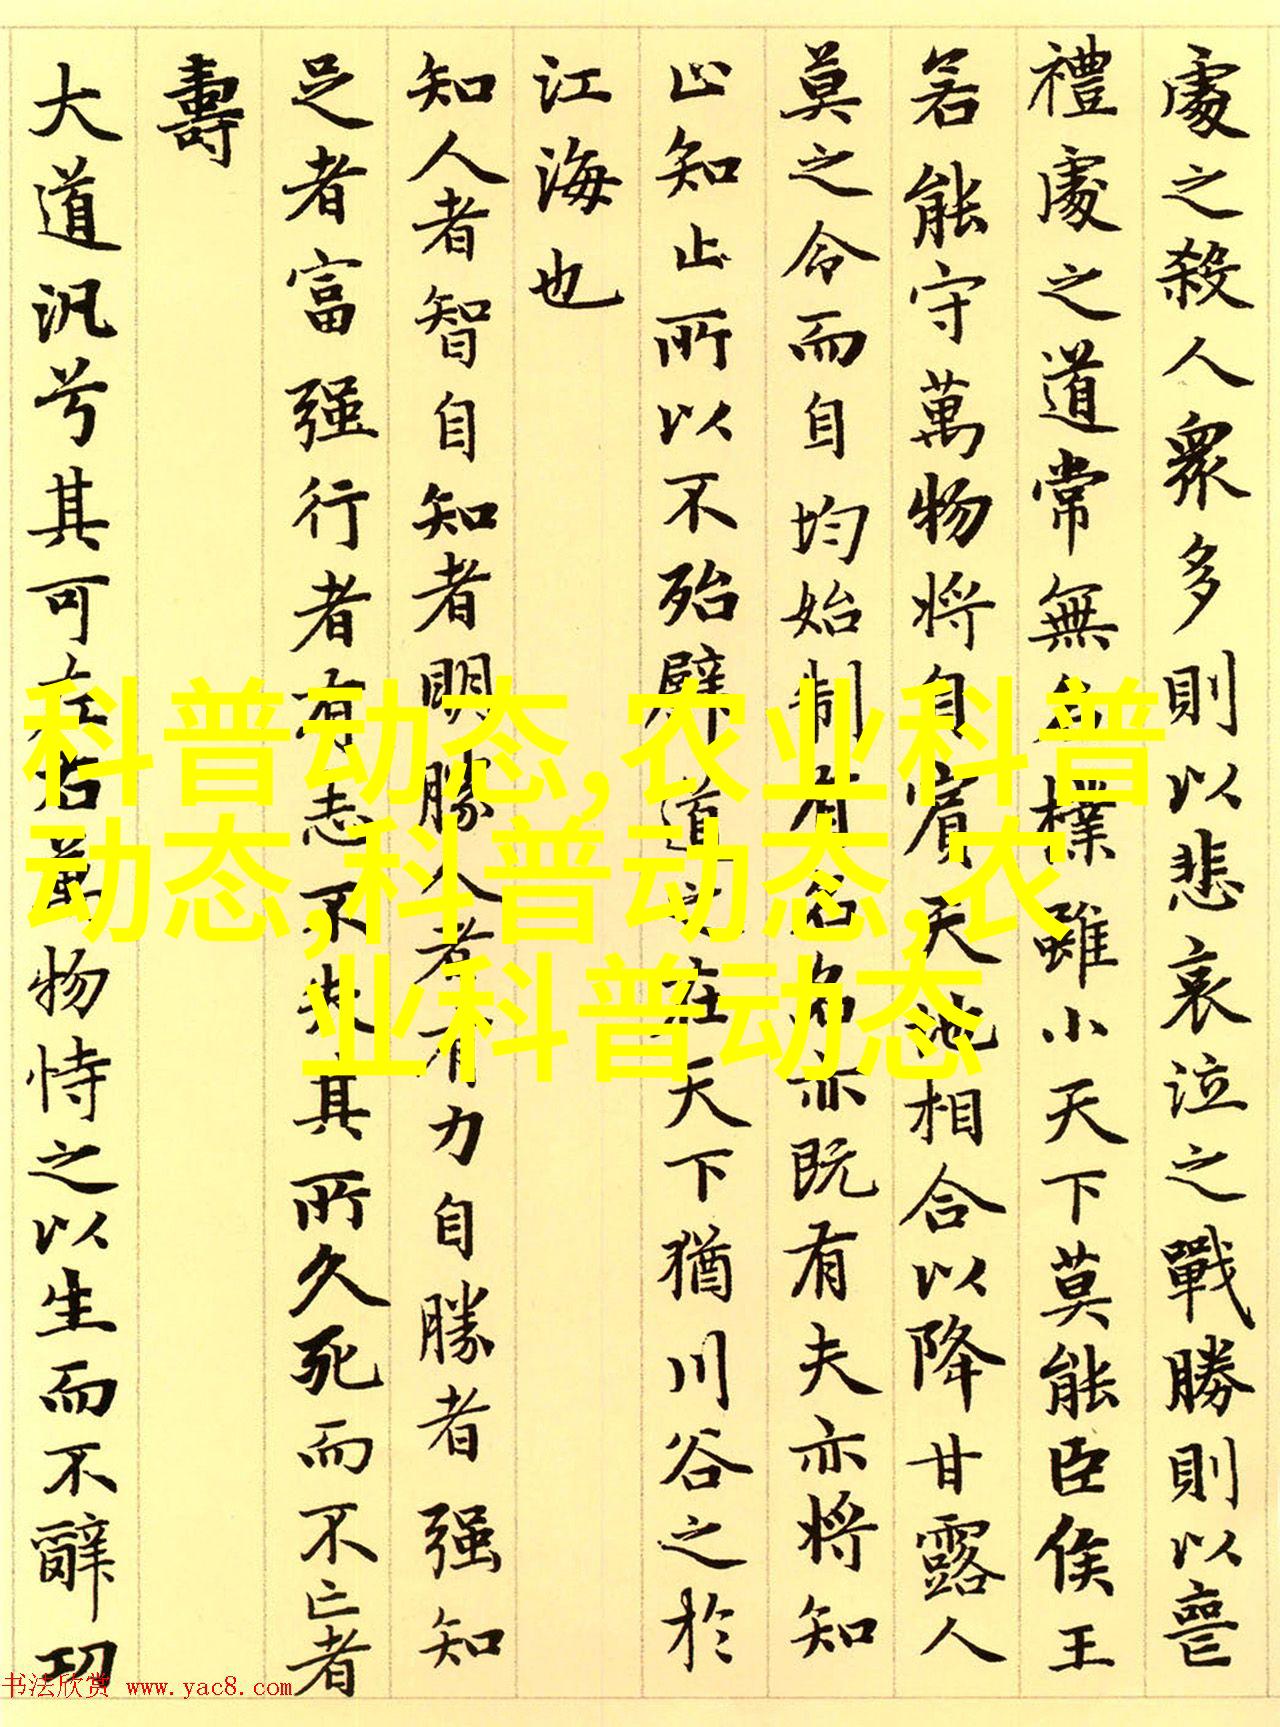 處之殺人衆多則以悲哀泣之戰勝則以喪
禮處之道常無名樸雖小天下莫能臣侯王
若能守萬物將自賓天地相合以降甘露人
莫之令而自均始制有名名亦既有夫亦將知
止知止所以不殆譬道之在天下猶川谷之於
江海也
知人者智自知者明勝人者有力自勝者强知
足者富强行者有志不失其所久死而不亡者
壽
大道汎兮其可左右萬物恃之以生而不辭功
科普动态,农业科普
动态,科普动态,农
业科普动态
书法欣赏 www.yac8.com